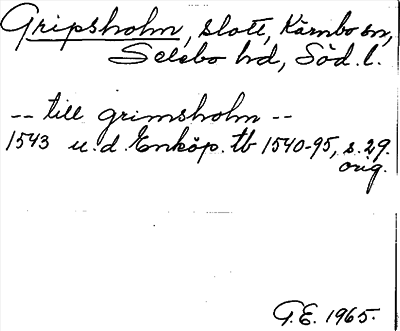 Gripsholm, slott, Kärnbo sn,
Selebo hd, Söd.l.
-- till grimsholm --
1543 u.d. Enköp. tb 1540-95, s. 29.
orig.
G.E. 1965.